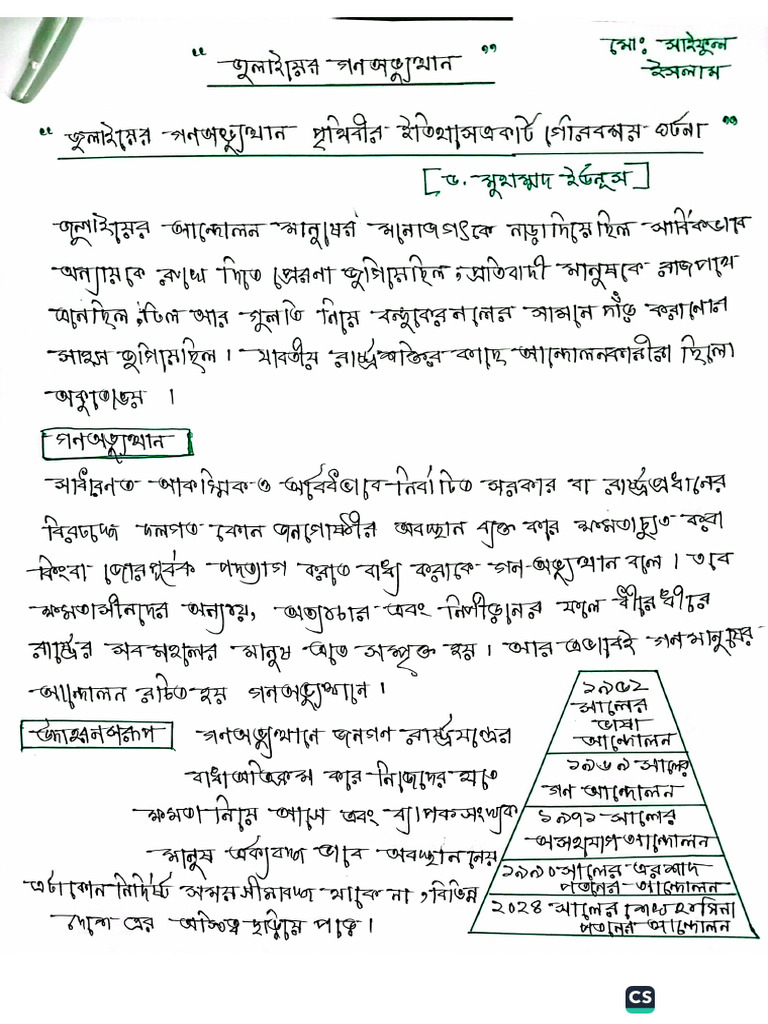 "জুলাইয়ের গনঅভ্যুত্থান"
মো: সাইফুল
ইসলাম
"জুলাইয়ের গনঅভ্যুত্থান পৃথিবীর ইতিহাসে একটি গৌরবময় ঘটনা"
[ড. মুহাম্মদ ইউনূস]
জুলাইয়ের আন্দোলন মানুষের মনোজগৎকে নাড়া দিয়েছিল সার্বিকভাবে
অন্যায়কে রুখে দিতে প্রেরনা জুগিয়েছিল, প্রতিবাদী মানুষকে রাজপথে
এনেছিল, ঢিল আর গুলতি নিয়ে বন্দুকের নলের সামনে দাঁড় করানোর
সাহস জুগিয়েছিল। যাবতীয় রাষ্ট্রশক্তির কাছে আন্দোলনকারীরা ছিলো
অকুতোভয়।
গনঅভ্যুত্থান
সাধারনত আকস্মিক ও অবৈধভাবে নির্বাচিত সরকার বা রাষ্ট্রপ্রধানের
বিরুদ্ধে দলগত কোন জনগোষ্ঠীর অবস্থান ব্যক্ত করে ক্ষমতাচ্যুত করা
কিংবা জোরপূর্বক পদত্যাগ করাতে বাধ্য করাকে গন-অভ্যুত্থান বলে। তবে
ক্ষমতাসীনদের অন্যায়, অত্যাচার এবং নিপীড়নের ফলে ধীরে ধীরে
রাষ্ট্রের সব মহলের মানুষ এতে সম্পৃক্ত হয়। আর এভাবেই গনমানুষের
আন্দোলন রচিত হয় গনঅভ্যুত্থানে।
উদাহরনস্বরূপ
গনঅভ্যুত্থানে জনগণ রাষ্ট্রযন্ত্রের
বাধা অতিক্রম করে নিজেদের হাতে
ক্ষমতা নিয়ে আসে এবং ব্যাপক সংখ্যক
মানুষ ঐক্যবদ্ধ ভাবে অবস্থান নেয়
এটা কোন নির্দিষ্ট সময়সীমাবদ্ধ থাকে না, বিভিন্ন
দেশে এর অস্তিত্ব ছড়িয়ে পড়ে।
১৯৫২
সালের
ভাষা
আন্দোলন
১৯৬৯ সালের
গন আন্দোলন
১৯৭১ সালের
অসহযোগ আন্দোলন
১৯৯০ সালের এরশাদ
পতনের আন্দোলন
২০২৪ সালের শেখ হাসিনা
পতনের আন্দোলন
CS